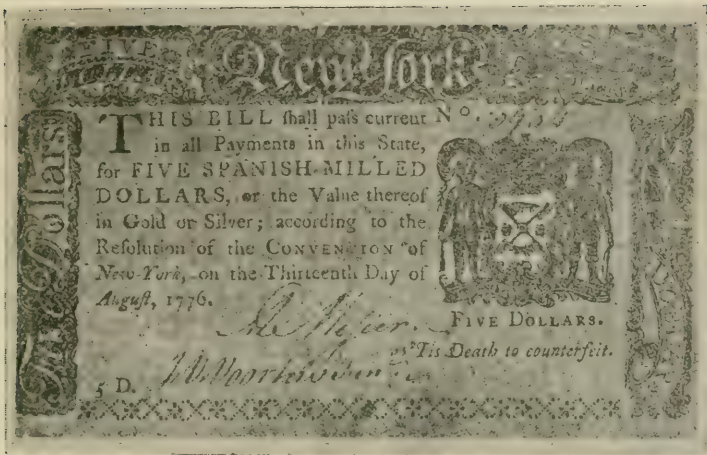 FIVE
New York
Five Dollars
THIS BILL ſhall paſs current
in all Payments in this State,
for FIVE SPANISH-MILLED
DOLLARS, or the Value thereof
in Gold or Silver; according to the
Reſolution of the CONVENTION of
New-York, on the Thirteenth Day of
Auguſt, 1776.
No.
FIVE DOLLARS.
'Tis Death to counterfeit.
5 D.